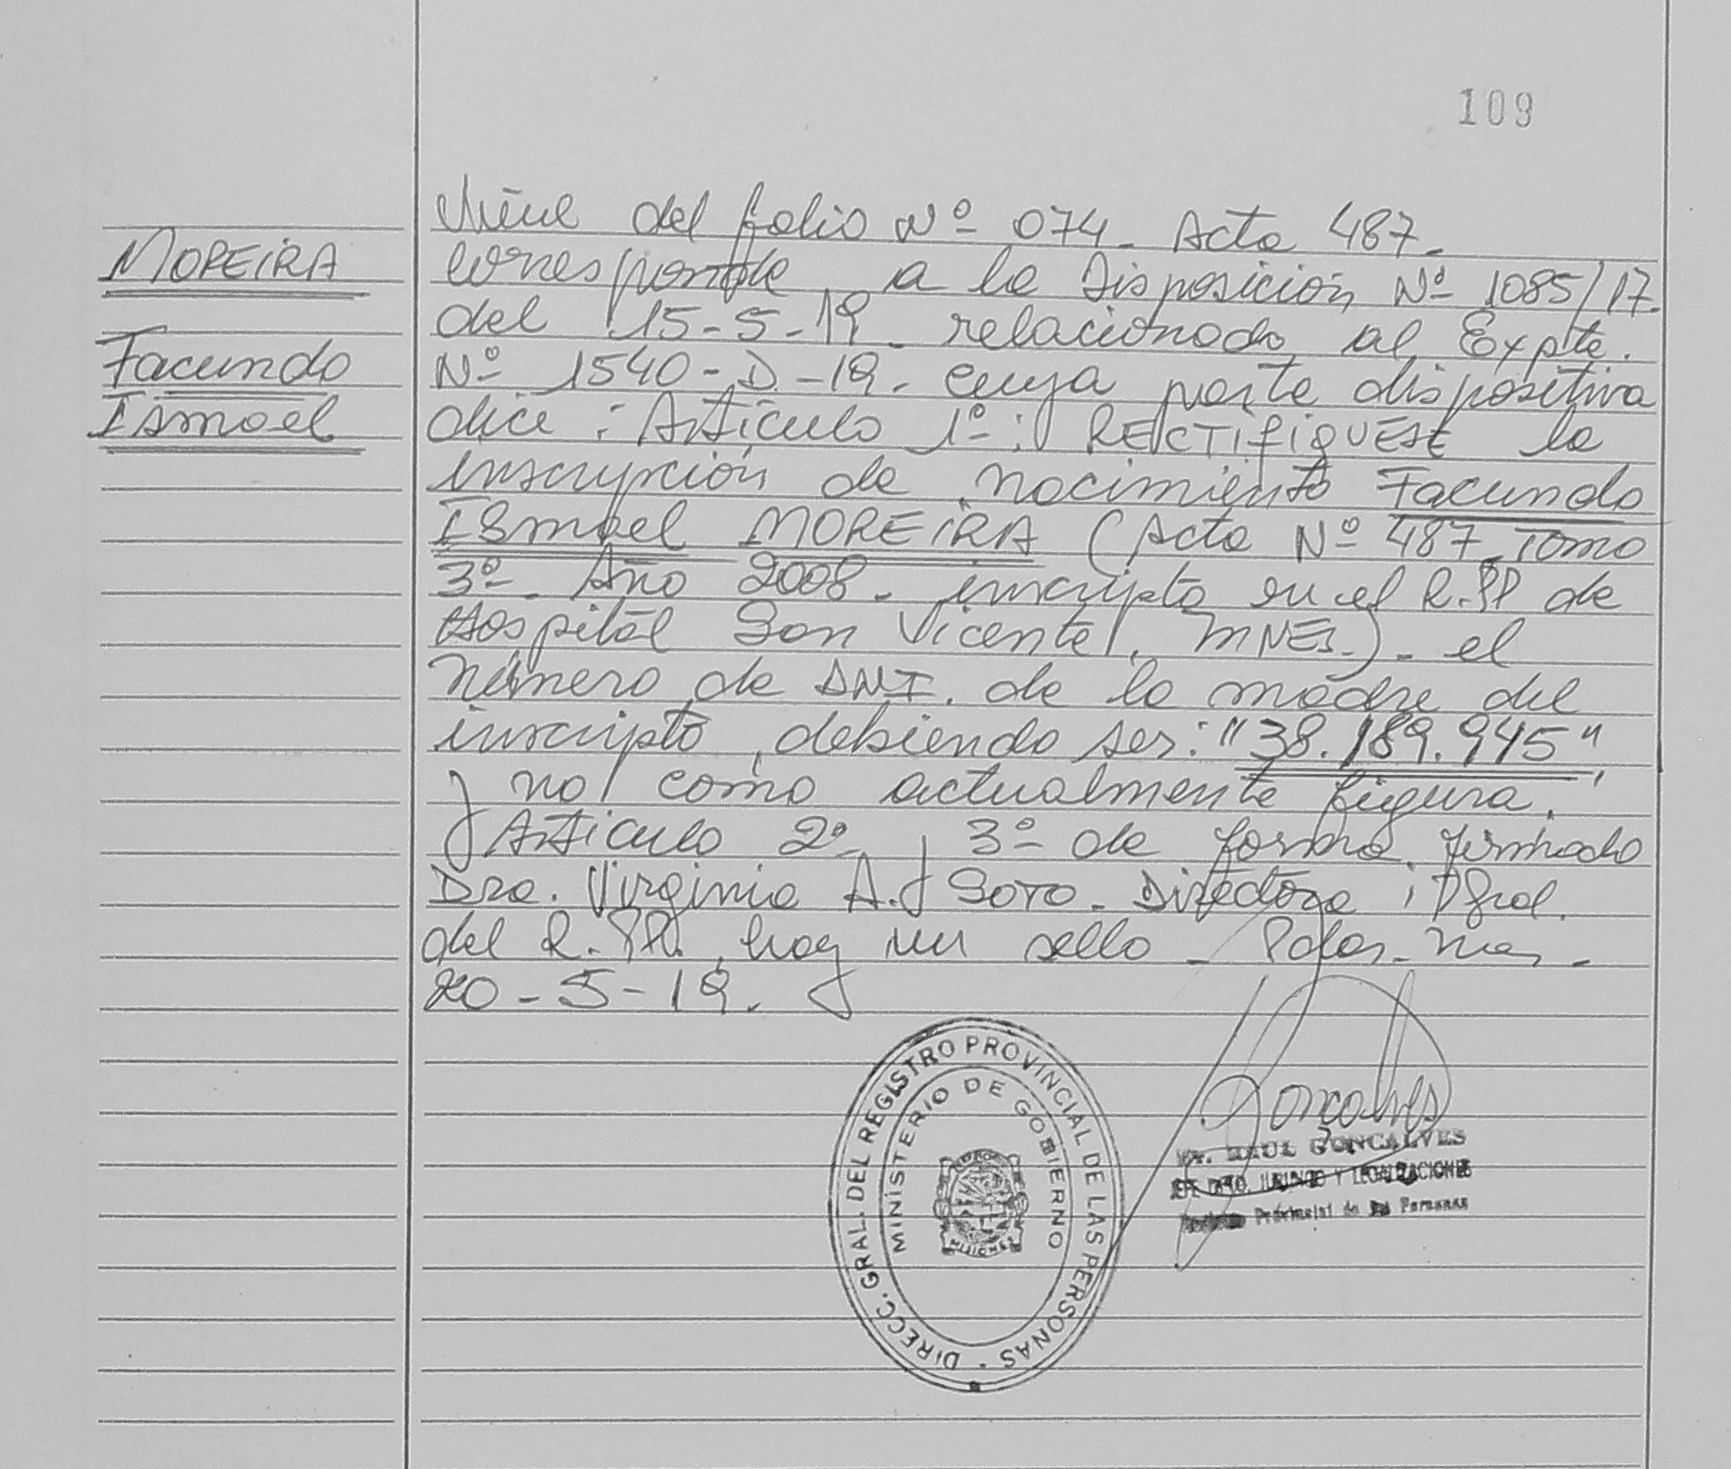 109
MOREIRA
Facundo
Ismael
Viene del folio Nº 074. Acta 487.
corresponde a la Disposición Nº 1085/17.
del 15-5-19. relacionado al Expte.
Nº 1540-D-19. cuya parte dispositiva
dice: Artículo 1º: RECTIFIQUESE la
inscripción de nacimiento Facundo
Ismael MOREIRA (Acta Nº 487. Tomo
3º. Año 2008. inscripto en el R.PP de
Hospital San Vicente, MNES.). el
número de DNI. de la madre del
inscripto, debiendo ser: "38.189.945",
y no como actualmente figura."
Artículo 2º y 3º de forma. firmado
Dra. Virginia A. Soto. Directora Gral.
del R.PP. hay un sello. Pdas. Mnes.
20-5-19.
DIRECC. GRAL. DEL REGISTRO PROVINCIAL DE LAS PERSONAS
MINISTERIO DE GOBIERNO
MISIONES
Goncalves
RAUL GONCALVES
JEFE DPTO. JURIDICO Y LEGALIZACIONES
Provincial de las Personas